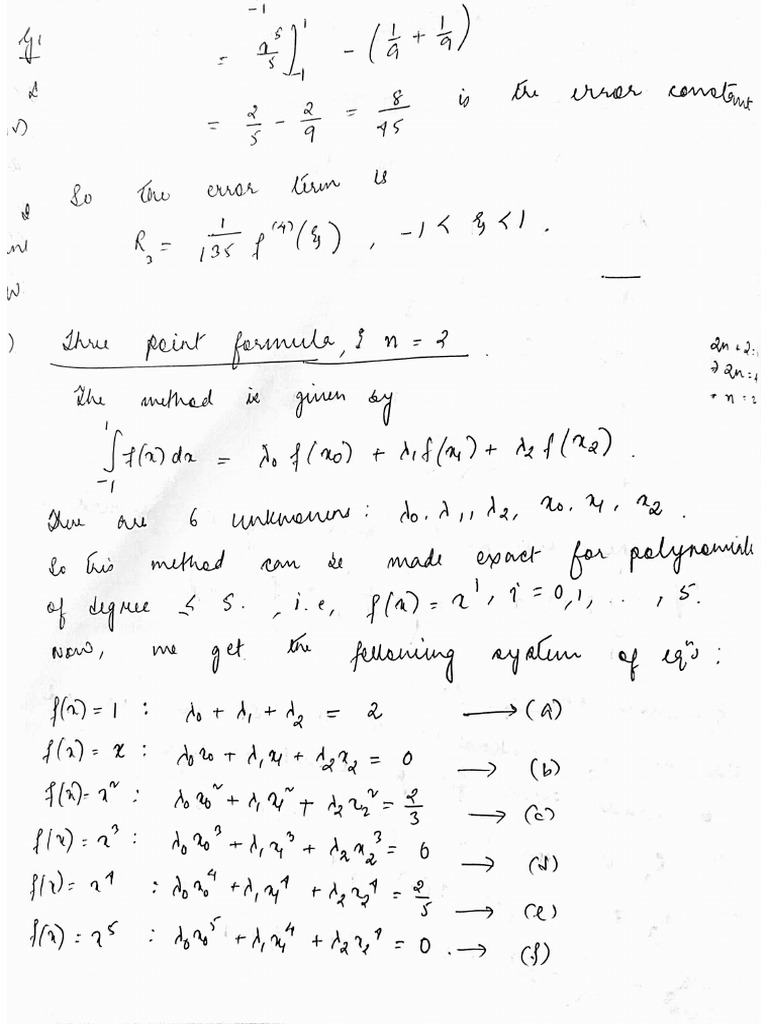 -1
= x⁵/5 ]₋₁¹ - (1/9 + 1/9)
= 2/5 - 2/9 = 8/45 is the error constant
So the error term is
R₃ = 1/135 f⁽⁴⁾(ξ), -1 < ξ < 1.
Three point formula, n = 2.
2n + 2 =
⇒ 2n = 4
The method is given by
∫₋₁¹ f(x) dx = λ₀ f(x₀) + λ₁ f(x₁) + λ₂ f(x₂).
There are 6 unknowns: λ₀, λ₁, λ₂, x₀, x₁, x₂.
So this method can be made exact for polynomials
of degree ≤ 5., i.e, f(x) = xⁱ, i = 0,1, .. , 5.
Now, we get the following system of eqⁿs:
f(x) = 1 : λ₀ + λ₁ + λ₂ = 2 → (a)
f(x) = x : λ₀x₀ + λ₁x₁ + λ₂x₂ = 0 → (b)
f(x) = x² : λ₀x₀² + λ₁x₁² + λ₂x₂² = 2/3 → (c)
f(x) = x³ : λ₀x₀³ + λ₁x₁³ + λ₂x₂³ = 0 → (d)
f(x) = x⁴ : λ₀x₀⁴ + λ₁x₁⁴ + λ₂x₂⁴ = 2/5 → (e)
f(x) = x⁵ : λ₀x₀⁵ + λ₁x₁⁴ + λ₂x₂⁴ = 0. → (f)